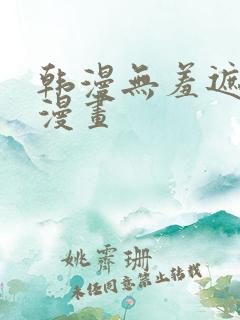 韩漫無羞遮
漫畫
姚霽珊
未经同意禁止转载